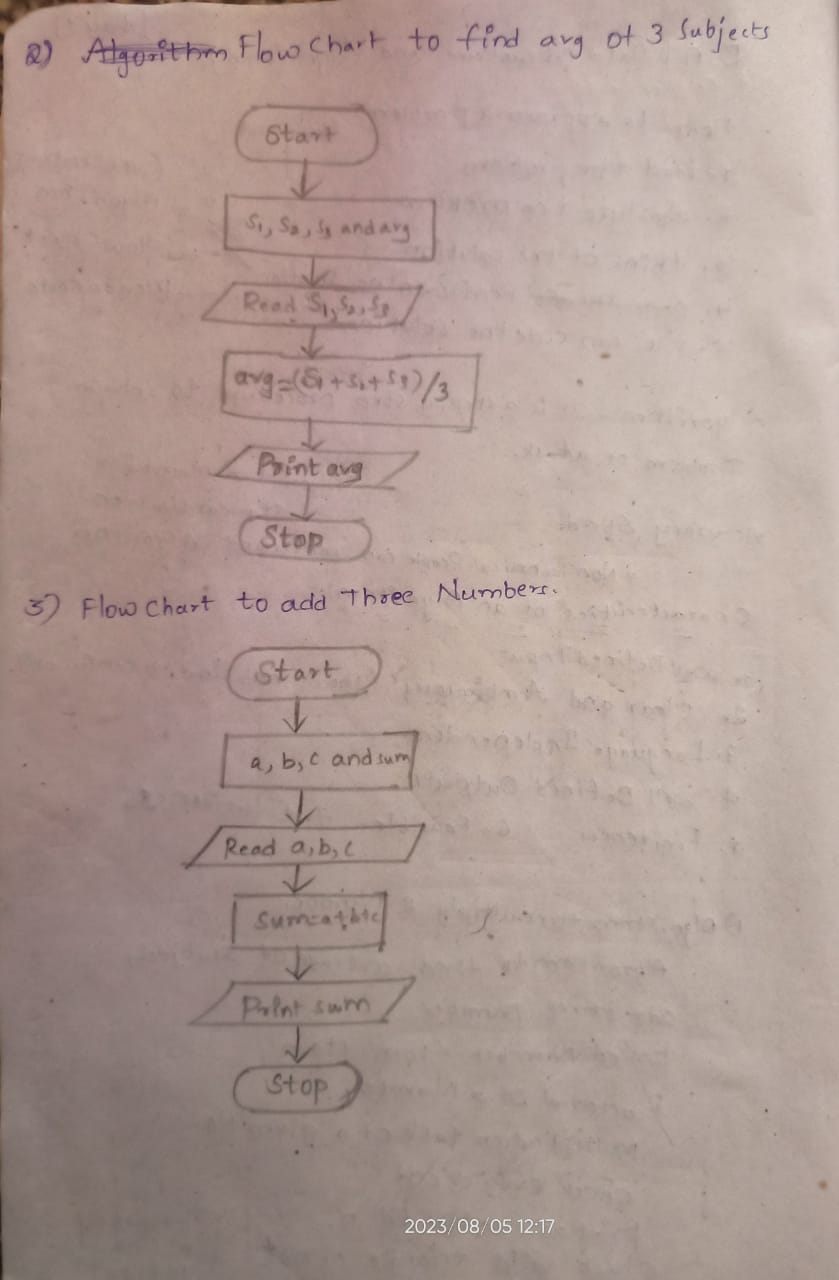 2) Algorithm Flow Chart to find avg of 3 Subjects
Start
S1, S2, S3 and avg
Read S1, S2, S3
avg=(S1+S2+S3)/3
Print avg
Stop
3) Flow Chart to add Three Numbers.
Start
a, b, c and sum
Read a, b, c
Sum=a+b+c
Print sum
Stop
2023/08/05 12:17